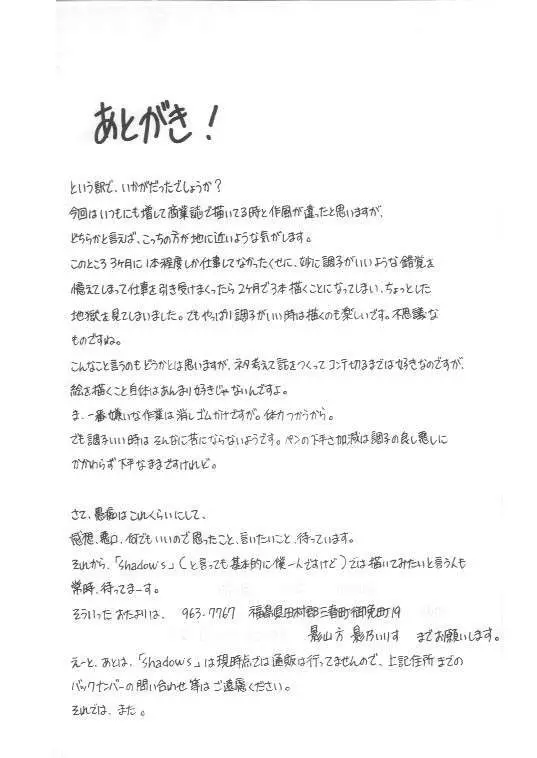 あとがき！
という訳で、いかがだったでしょうか？
今回はいつにも増して商業誌で描いてる時と作風が違ったと思いますが、
どちらかと言えば、こっちの方が地に近いような気がします。
このところ3ヶ月に1本程度しか仕事してなかったくせに、妙に調子がいいような錯覚を
憶えてしまって仕事を引き受けまくったら2ヶ月で3本描くことになってしまい、ちょっとした
地獄を見てしまいました。でもやっぱり調子がいい時は描くのも楽しいです。不思議な
ものですね。
こんなこと言うのもどうかとは思いますが、ネタ考えて話をつくってコンテ切るまでは好きなのですが、
絵を描くこと自体はあんまり好きじゃないんですよ。
ま、一番嫌いな作業は消しゴムがけですが。体力つかうから。
でも調子いい時はそんなに苦にならないようです。ペンの下手さ加減は調子の良し悪しに
かかわらず下手なままですけれど。
さて、愚痴はこれくらいにして、
感想、悪口、何でもいいので思ったこと、言いたいこと、待っています。
それから、「shadow's」(と言っても基本的に僕一人ですけど)では描いてみたいと言う人も
常時、待ってまーす。
そういったおたよりは、 963-7767 福島県田村郡三春町御免町19
影山方 影乃いりす までお願いします。
えーと、あとは、「shadow's」は現時点では通販は行ってませんので、上記住所までの
バックナンバーの問い合わせ等はご遠慮ください。
それでは、また。